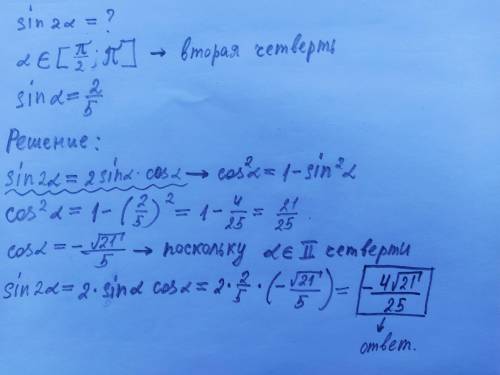 sin2α = ?
α ∈ [π/2; π] → вторая четверть
sinα = 2/5
Решение:
sin2α = 2 sinα · cosα → cos²α = 1 - sin²α
cos²α = 1 - (2/5)² = 1 - 4/25 = 21/25.
cosα = -√21/5 → поскольку α ∈ II четверти
sin2α = 2 · sinα cosα = 2 · 2/5 · (-√21/5) = -4√21/25
ответ.